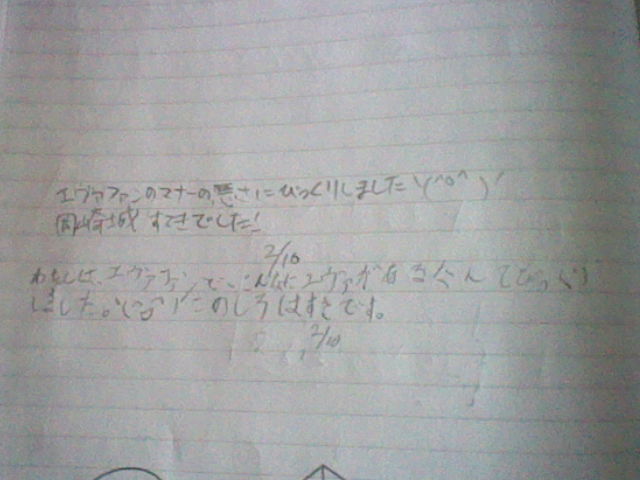 エヴァファンのマナーの悪さにびっくりしました\(^o^)/
岡崎城 すてきでした!
2/10
わたしは、エヴァファンで、こんなにエヴァがあるなんてびっくり
しました。\(^o^)/このしろはすきです。
2/10